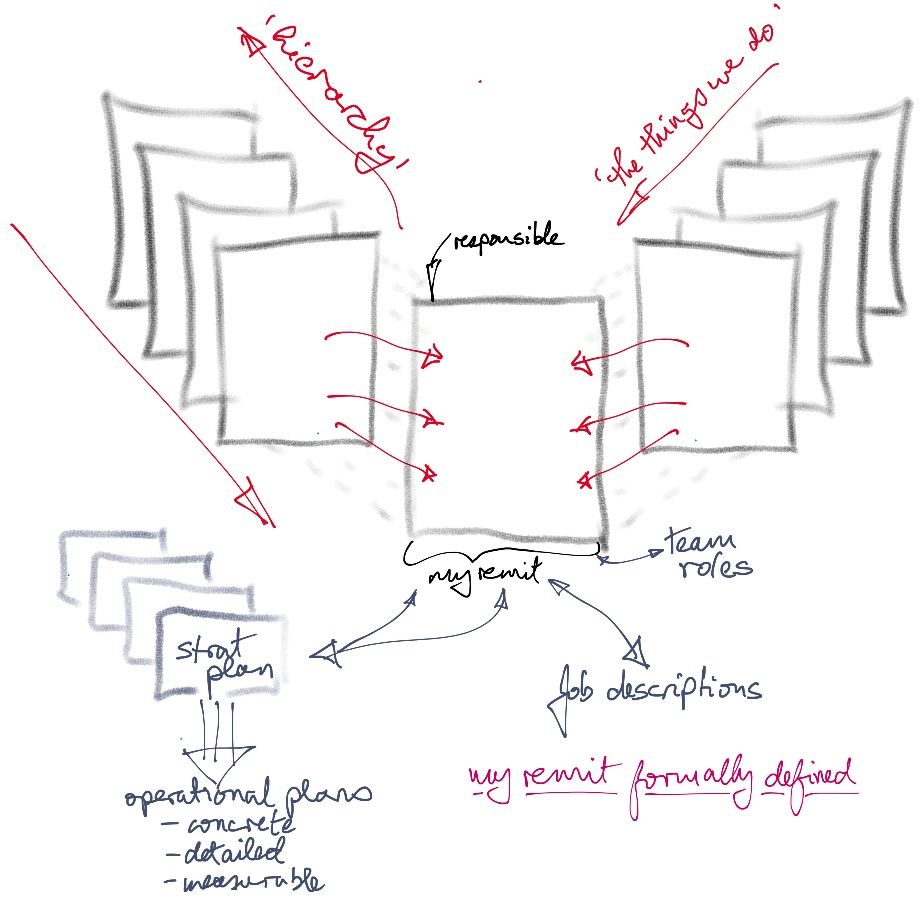 'hierarchy'
'the things we do'
responsible
my remit
team
roles
strat
plan
Job descriptions
operational plans
- concrete
- detailed
- measurable
my remit formally defined